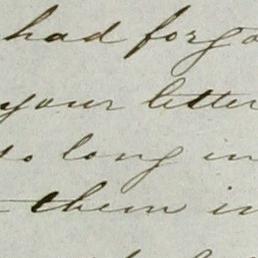 had forgo
your letter
so long in
them in